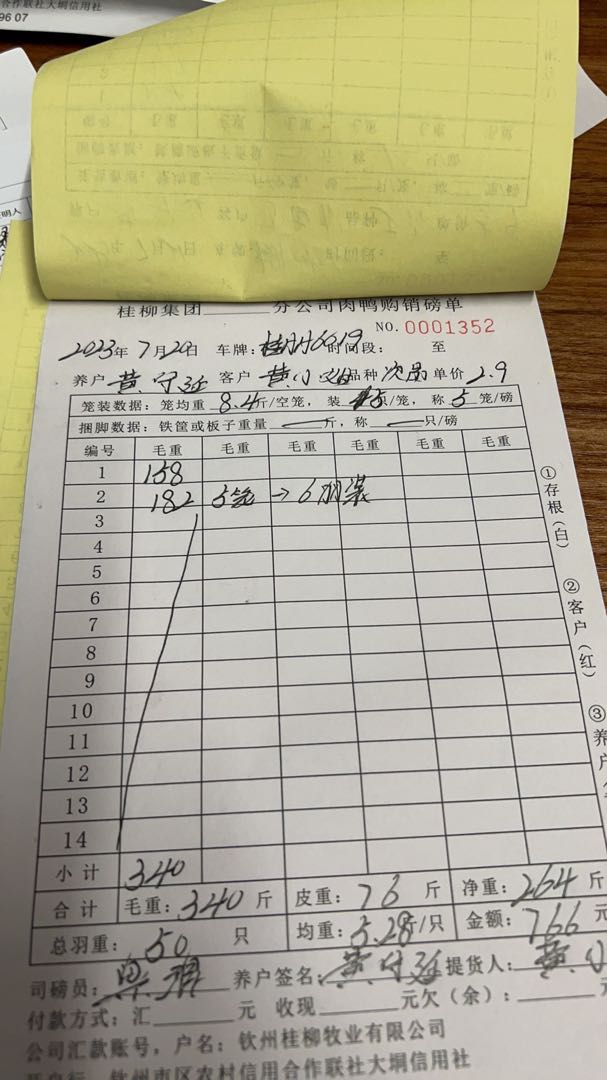 合作联社大垌信用社
96 07
桂柳集团______分公司肉鸭购销磅单
NO.0001352
2023年7月20日 车牌: 6619 时间段: 至
养户 黄守廷 客户 黄 品种 次品 单价 2.9
笼装数据: 笼均重 8.4斤/空笼, 装 5只/笼, 称 5 笼/磅
捆脚数据: 铁筐或板子重量 — 斤, 称 — 只/磅
编号 毛重 毛重 毛重 毛重 毛重 毛重
1 158
2 182 5笼 → 6羽装
3
4
5
6
7
8
9
10
11
12
13
14
小计 340
合计 毛重: 340 斤 皮重: 76 斤 净重: 264 斤
总羽重: 50 只 均重: 5.28斤/只 金额: 766 元
司磅员: 养户签名: 黄守廷 提货人: 黄
付款方式: 汇______元 收现______元欠(余): ______元
公司汇款账号, 户名: 钦州桂柳牧业有限公司
开户行: 钦州市区农村信用合作联社大垌信用社
①存根(白)
②客户(红)
③养户